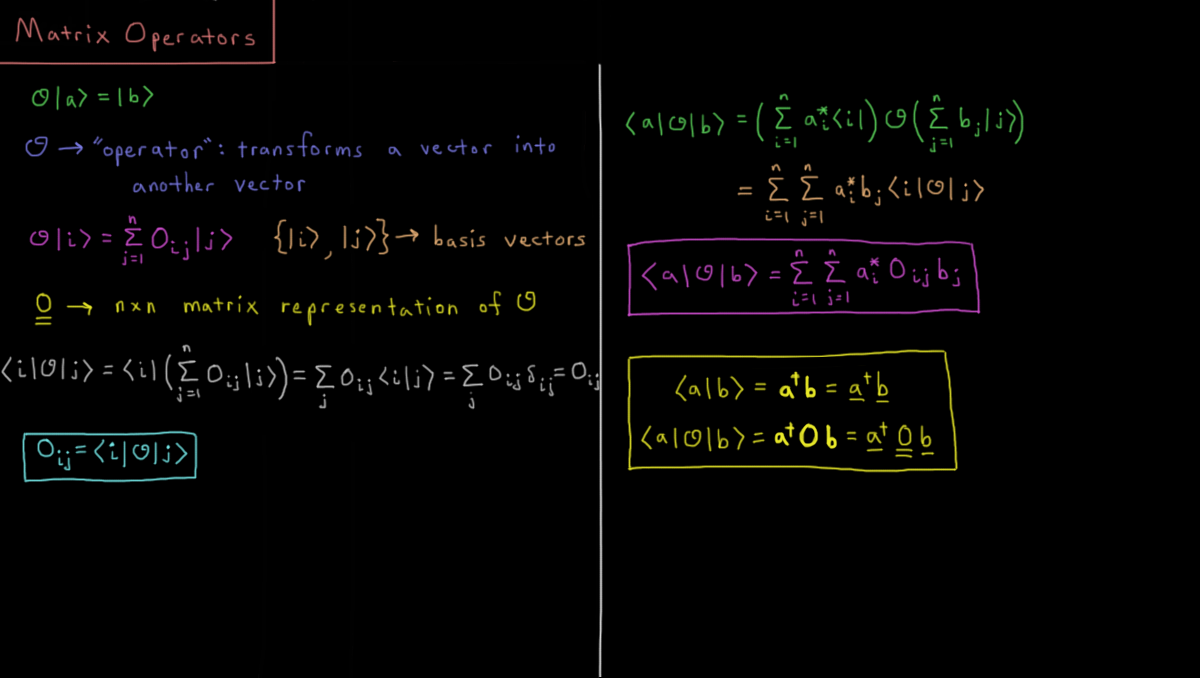 Matrix Operators
𝒪|a⟩ = |b⟩
𝒪 → "operator": transforms a vector into
another vector
𝒪|i⟩ = ∑_{j=1}^{n} O_{ij}|j⟩ {|i⟩, |j⟩} → basis vectors
O̳ → n×n matrix representation of 𝒪
⟨i|𝒪|j⟩ = ⟨i|(∑_{j=1}^{n} O_{ij}|j⟩) = ∑_{j} O_{ij}⟨i|j⟩ = ∑_{j} O_{ij}δ_{ij} = O_{ij}
O_{ij} = ⟨i|𝒪|j⟩
⟨a|𝒪|b⟩ = (∑_{i=1}^{n} a_i^*⟨i|) 𝒪 (∑_{j=1}^{n} b_j|j⟩)
= ∑_{i=1}^{n} ∑_{j=1}^{n} a_i^* b_j ⟨i|𝒪|j⟩
⟨a|𝒪|b⟩ = ∑_{i=1}^{n} ∑_{j=1}^{n} a_i^* O_{ij} b_j
⟨a|b⟩ = 𝐚†𝐛 = a̲†b̲
⟨a|𝒪|b⟩ = 𝐚†𝐎𝐛 = a̲† O̳ b̲